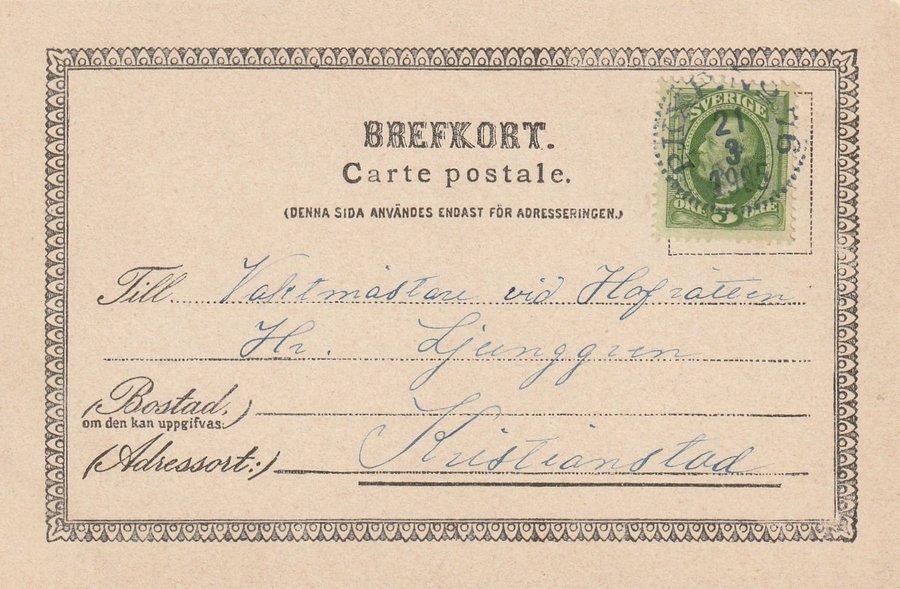 BREFKORT.
Carte postale.
(DENNA SIDA ANVÄNDES ENDAST FÖR ADRESSERINGEN.)
SVERIGE
21
3
1905
5
Till Vaktmästare vid Hofrätten
Hr. Ljunggren
(Bostad,)
om den kan uppgifvas:
(Adressort:) Kristianstad